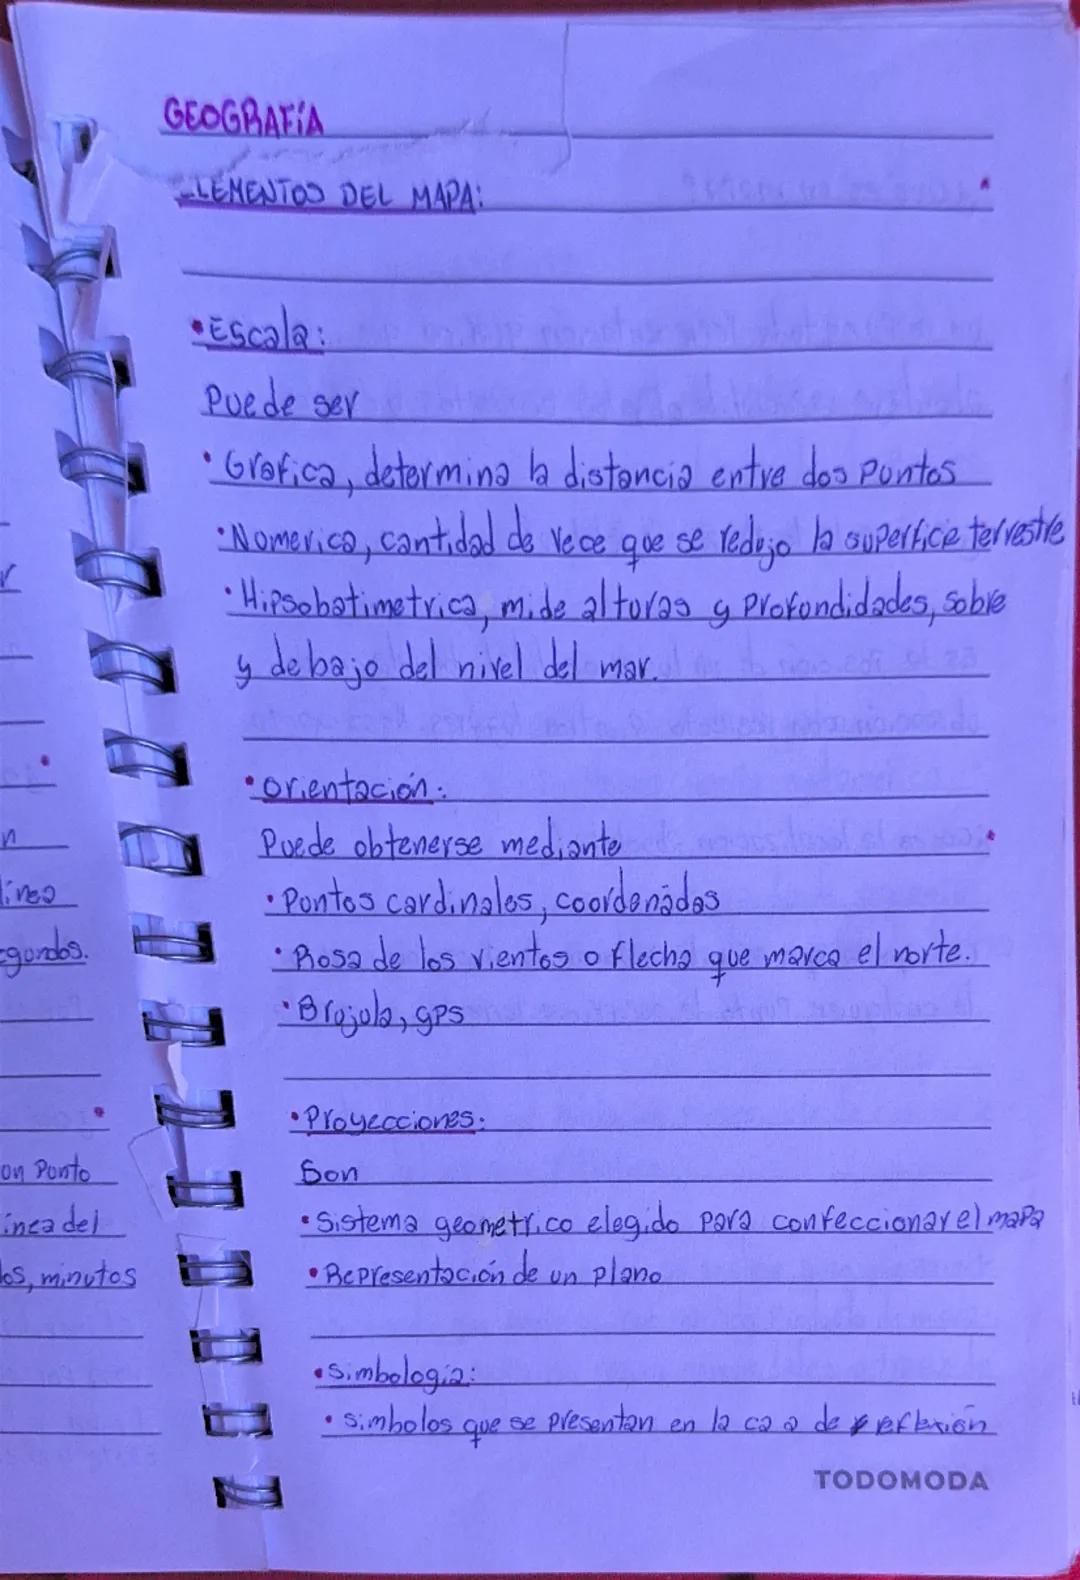 GEOGRAFÍA
ELEMENTOS DEL MAPA:
• Escala:
Puede ser
• Grafica, determina la distancia entre dos Puntos
• Numerica, cantidad de vece que se redujo la superficie terrestre
• Hipsobatimetrica, mide alturas y Profundidades, sobre
y debajo del nivel del mar.
• orientación:
Puede obtenerse mediante
• Puntos cardinales, coordenadas
• Rosa de los vientos o flecha que marca el norte.
• Brujula, gps
• Proyecciones:
Son
• Sistema geometrico elegido para confeccionar el mapa
• Representación de un plano
• Simbologia:
• simbolos que se presentan en la de reflexión
TODOMODA
línea
egundos.
Punto
línea del
minutos